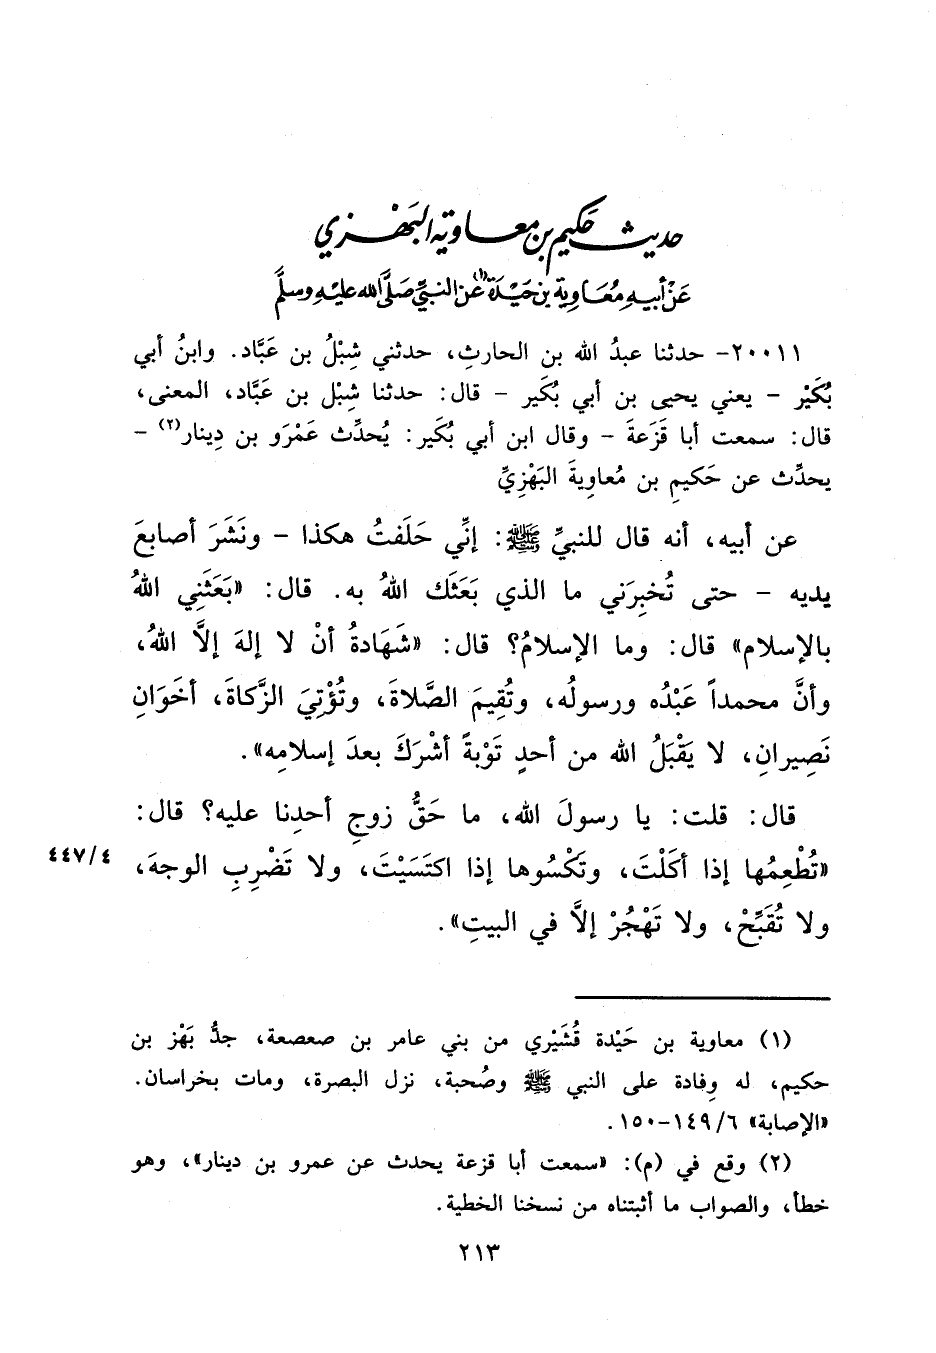 حديث حكيم بن معاوية البَهْزي
عَنْ أبيه مُعَاوية بن حَيْدَة(١) عَن النبيِّ صَلَّى الله عليْهِ وسلَّم
٢٠٠١١- حدثنا عبدُ الله بن الحارثِ، حدثني شِبْلُ بن عَبَّاد. وابنُ أبي
بُكَيْر - يعني يحيى بن أبي بُكَير - قال: حدثنا شِبْل بن عَبَّاد، المعنى،
قال: سمعت أبا قَزَعةَ - وقال ابن أبي بُكَير: يُحدِّث عَمْرَو بن دِينار(٢) -
يحدِّث عن حَكيمِ بن مُعاوِيةَ البَهْزِيِّ
عن أبيه، أنه قال للنبيِّ ﷺ: إنِّي حَلَفتُ هكذا - ونَشَرَ أصابعَ
يديه - حتى تُخبِرَني ما الذي بَعَثَك اللهُ به. قال: «بَعَثَنِي اللهُ
بالإسلام» قال: وما الإسلامُ؟ قال: «شَهَادةُ أنْ لا إلهَ إلَّا اللهُ،
وأنَّ محمداً عَبْدُه ورسولُه، وتُقِيمَ الصَّلاةَ، وتُؤْتِيَ الزَّكاةَ، أخَوَانِ
نَصِيرانِ، لا يَقْبَلُ الله من أحدٍ تَوْبةً أشْرَكَ بعدَ إسلامِه».
قال: قلت: يا رسولَ الله، ما حَقُّ زوجِ أحدِنا عليه؟ قال:
«تُطْعِمُها إذا أكَلْتَ، وتَكْسُوها إذا اكتَسَيْتَ، ولا تَضْرِبِ الوجهَ،
٤٤٧/٤
ولا تُقَبِّحْ، ولا تَهْجُرْ إلَّا في البيتِ».
(١) معاوية بن حَيْدة قُشَيْري من بني عامر بن صعصعة، جدُّ بَهْز بن
حكيم، له وِفادة على النبي ﷺ وصُحبة، نزل البصرة، ومات بخراسان.
«الإصابة» ١٤٩/٦-١٥٠.
(٢) وقع في (م): «سمعت أبا قزعة يحدث عن عمرو بن دينار»، وهو
خطأ، والصواب ما أثبتناه من نسخنا الخطية.
٢١٣